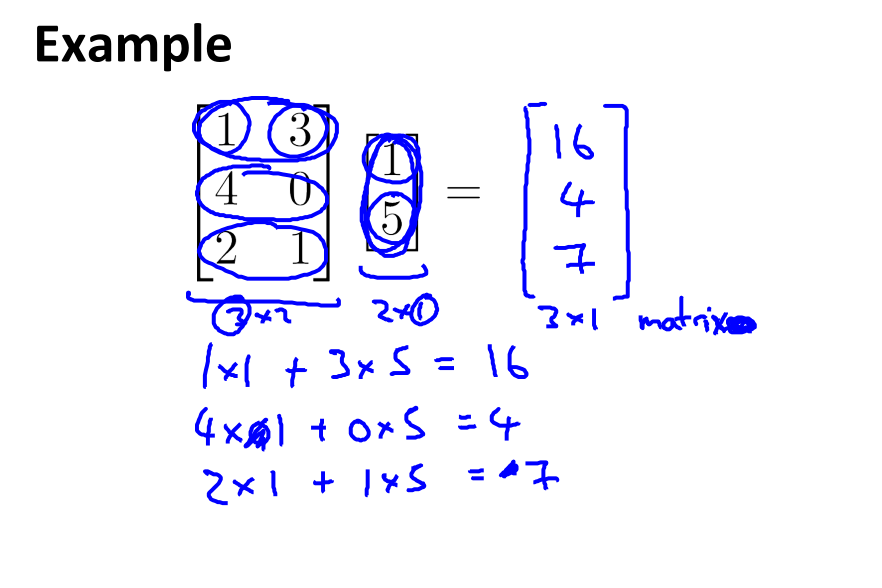 Example
1 3
4 0
2 1
1
5
=
16
4
7
3×2
2×1
3×1 matrix
1×1 + 3×5 = 16
4×1 + 0×5 = 4
2×1 + 1×5 = 7